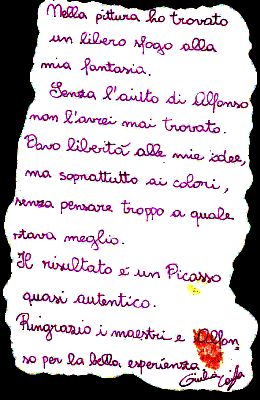 Nella pittura ho trovato
un libero sfogo alla
mia fantasia.
Senza l'aiuto di Alfonso
non l'avrei mai trovato.
Davo libertà alle mie idee,
ma soprattutto ai colori,
senza pensare troppo a quale
stava meglio.
Il risultato è un Picasso
quasi autentico.
Ringrazio i maestri e Alfon
so per la bella esperienza
Giulia